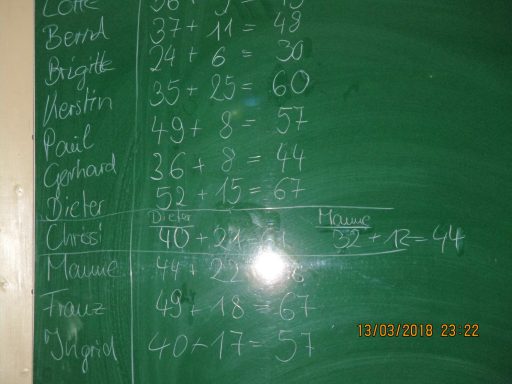 Lotte
Bernd 37 + 11 = 48
Brigitte 24 + 6 = 30
Kerstin 35 + 25 = 60
Paul 49 + 8 = 57
Gerhard 36 + 8 = 44
Dieter 52 + 15 = 67
Dieter Manne
Chrissi 40 + 21 = 32 + 12 = 44
Manne 44 + 22 =
Franz 49 + 18 = 67
Ingrid 40 + 17 = 57
13/03/2018 23:22